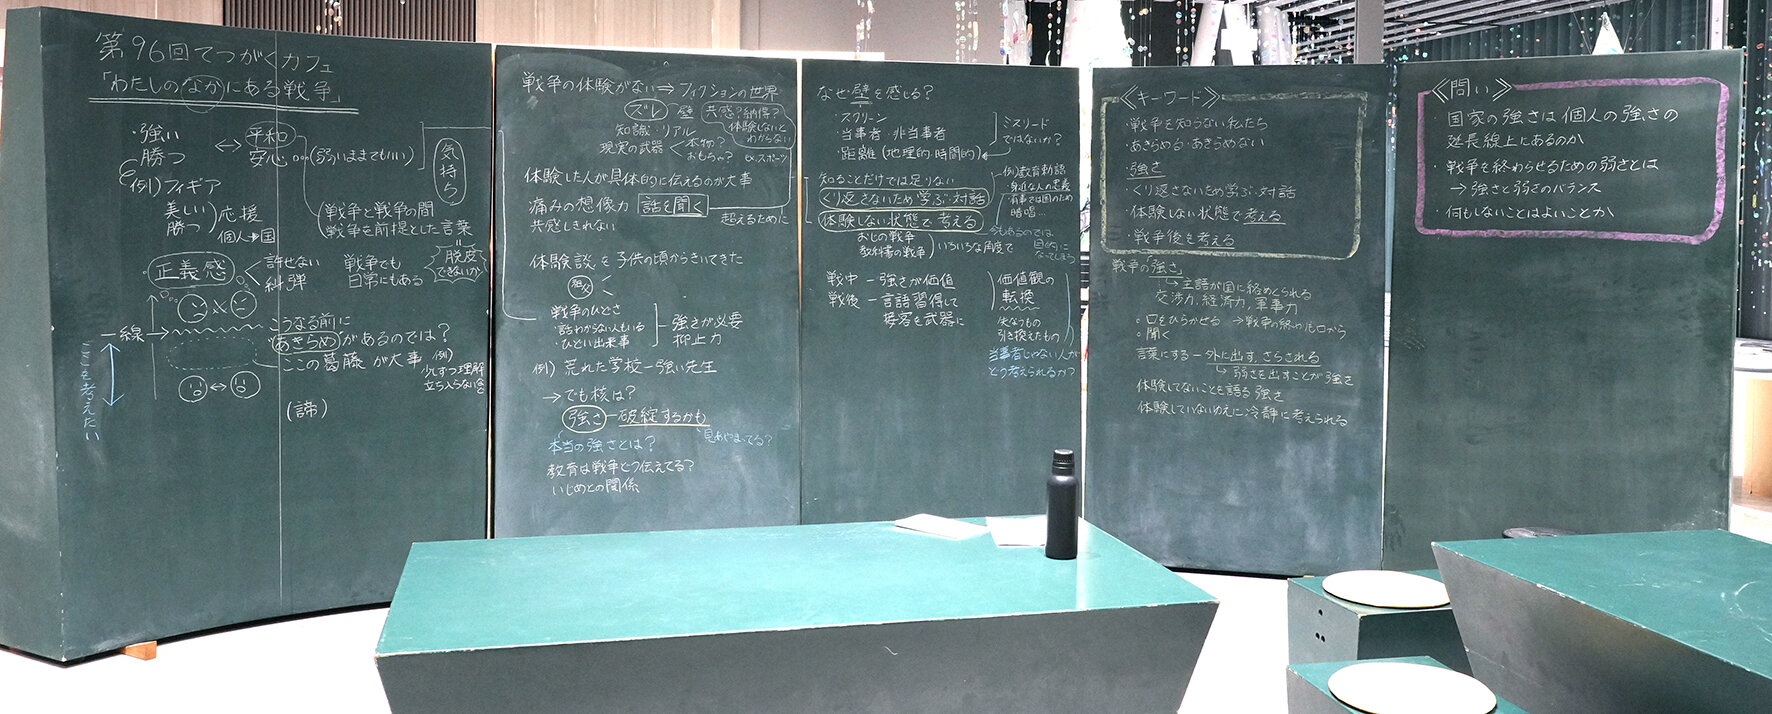 第96回てつがくカフェ
「わたしのなかにある戦争」
・強い
勝つ
↔ 平和
安心。(弱いままでもいい)
気持ち
例)フィギア
美しい
勝つ
応援
個人→国
戦争と戦争の間
戦争を前提とした言葉
脱皮
できないか
正義感
許せない
糾弾
戦争でも
日常にもある
一線
こうなる前に
あきらめがあるのでは?
ここの葛藤が大事
例)
少しずつ理解
立ち入らない
(諦)
ここを考えたい
戦争の体験がない⇒フィクションの世界
ズレ 壁 共感?納得?
体験しないと
わからない
ex.スポーツ
知識・リアル
現実の武器<本物?
おもちゃ?
体験した人が具体的に伝えるのが大事
痛みの想像力 話を聞く
超えるために
共感しきれない
体験談を子供の頃からきいてきた
祖父
戦争のひどさ
・話わからない人もいる
・ひどい出来事
強さが必要
抑止力
例)荒れた学校ー強い先生
→でも核は?
強さー破綻するかも
本当の強さとは?
見あやまってる?
教育は戦争どう伝えてる?
いじめとの関係
なぜ壁を感じる?
・スクリーン
・当事者・非当事者
・距離(地理的・時間的)
ミスリード
ではないか?
知ることだけでは足りない
くり返さないため学ぶ・対話
体験しない状態で考える
例)教育勅語
・身近な人の恩義
・有事では国のため
暗唱…
おじの戦争
教科書の戦争
いろいろな角度で
今もあるのでは
目的に
なってしまう
戦中ー強さが価値
戦後ー言語習得して
接客を武器に
価値観の
転換
失なうもの
引き換えたもの
当事者じゃない人が
どう考えられるか?
≪キーワード≫
・戦争を知らない私たち
・あきらめる・あきらめない
・強さ
・くり返さないため学ぶ・対話
・体験しない状態で考える
・戦争後も考える
戦争の「強さ」
→主語が国に絡めとられる
交渉力、経済力、軍事力
。口をひらかせる →戦争の終りは口から
。聞く
言葉にするー外に出す、さらされる
→弱さを出すことが強さ
体験してないことを語る強さ
体験していないゆえに冷静に考えられる
≪問い≫
・国家の強さは個人の強さの
延長線上にあるのか
・戦争を終わらせるための弱さとは
→強さと弱さのバランス
・何もしないことはよいことか